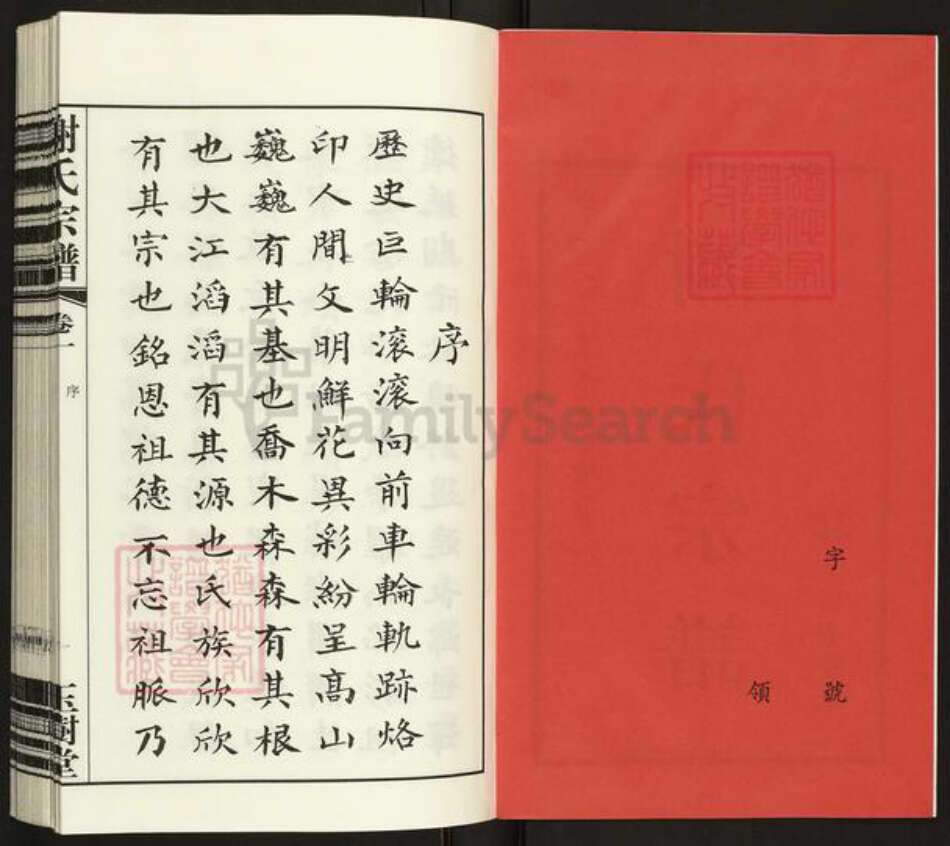 字
號
領
序
歷史巨輪滚滚向前車輪軌跡烙
印人間文明鮮花異彩紛呈高山
巍巍有其基也喬木森森有其根
也大江滔滔有其源也氏族欣欣
有其宗也銘恩祖德不忘祖脈乃
謝氏宗譜
卷一
序
一
玉樹堂
FamilySearch